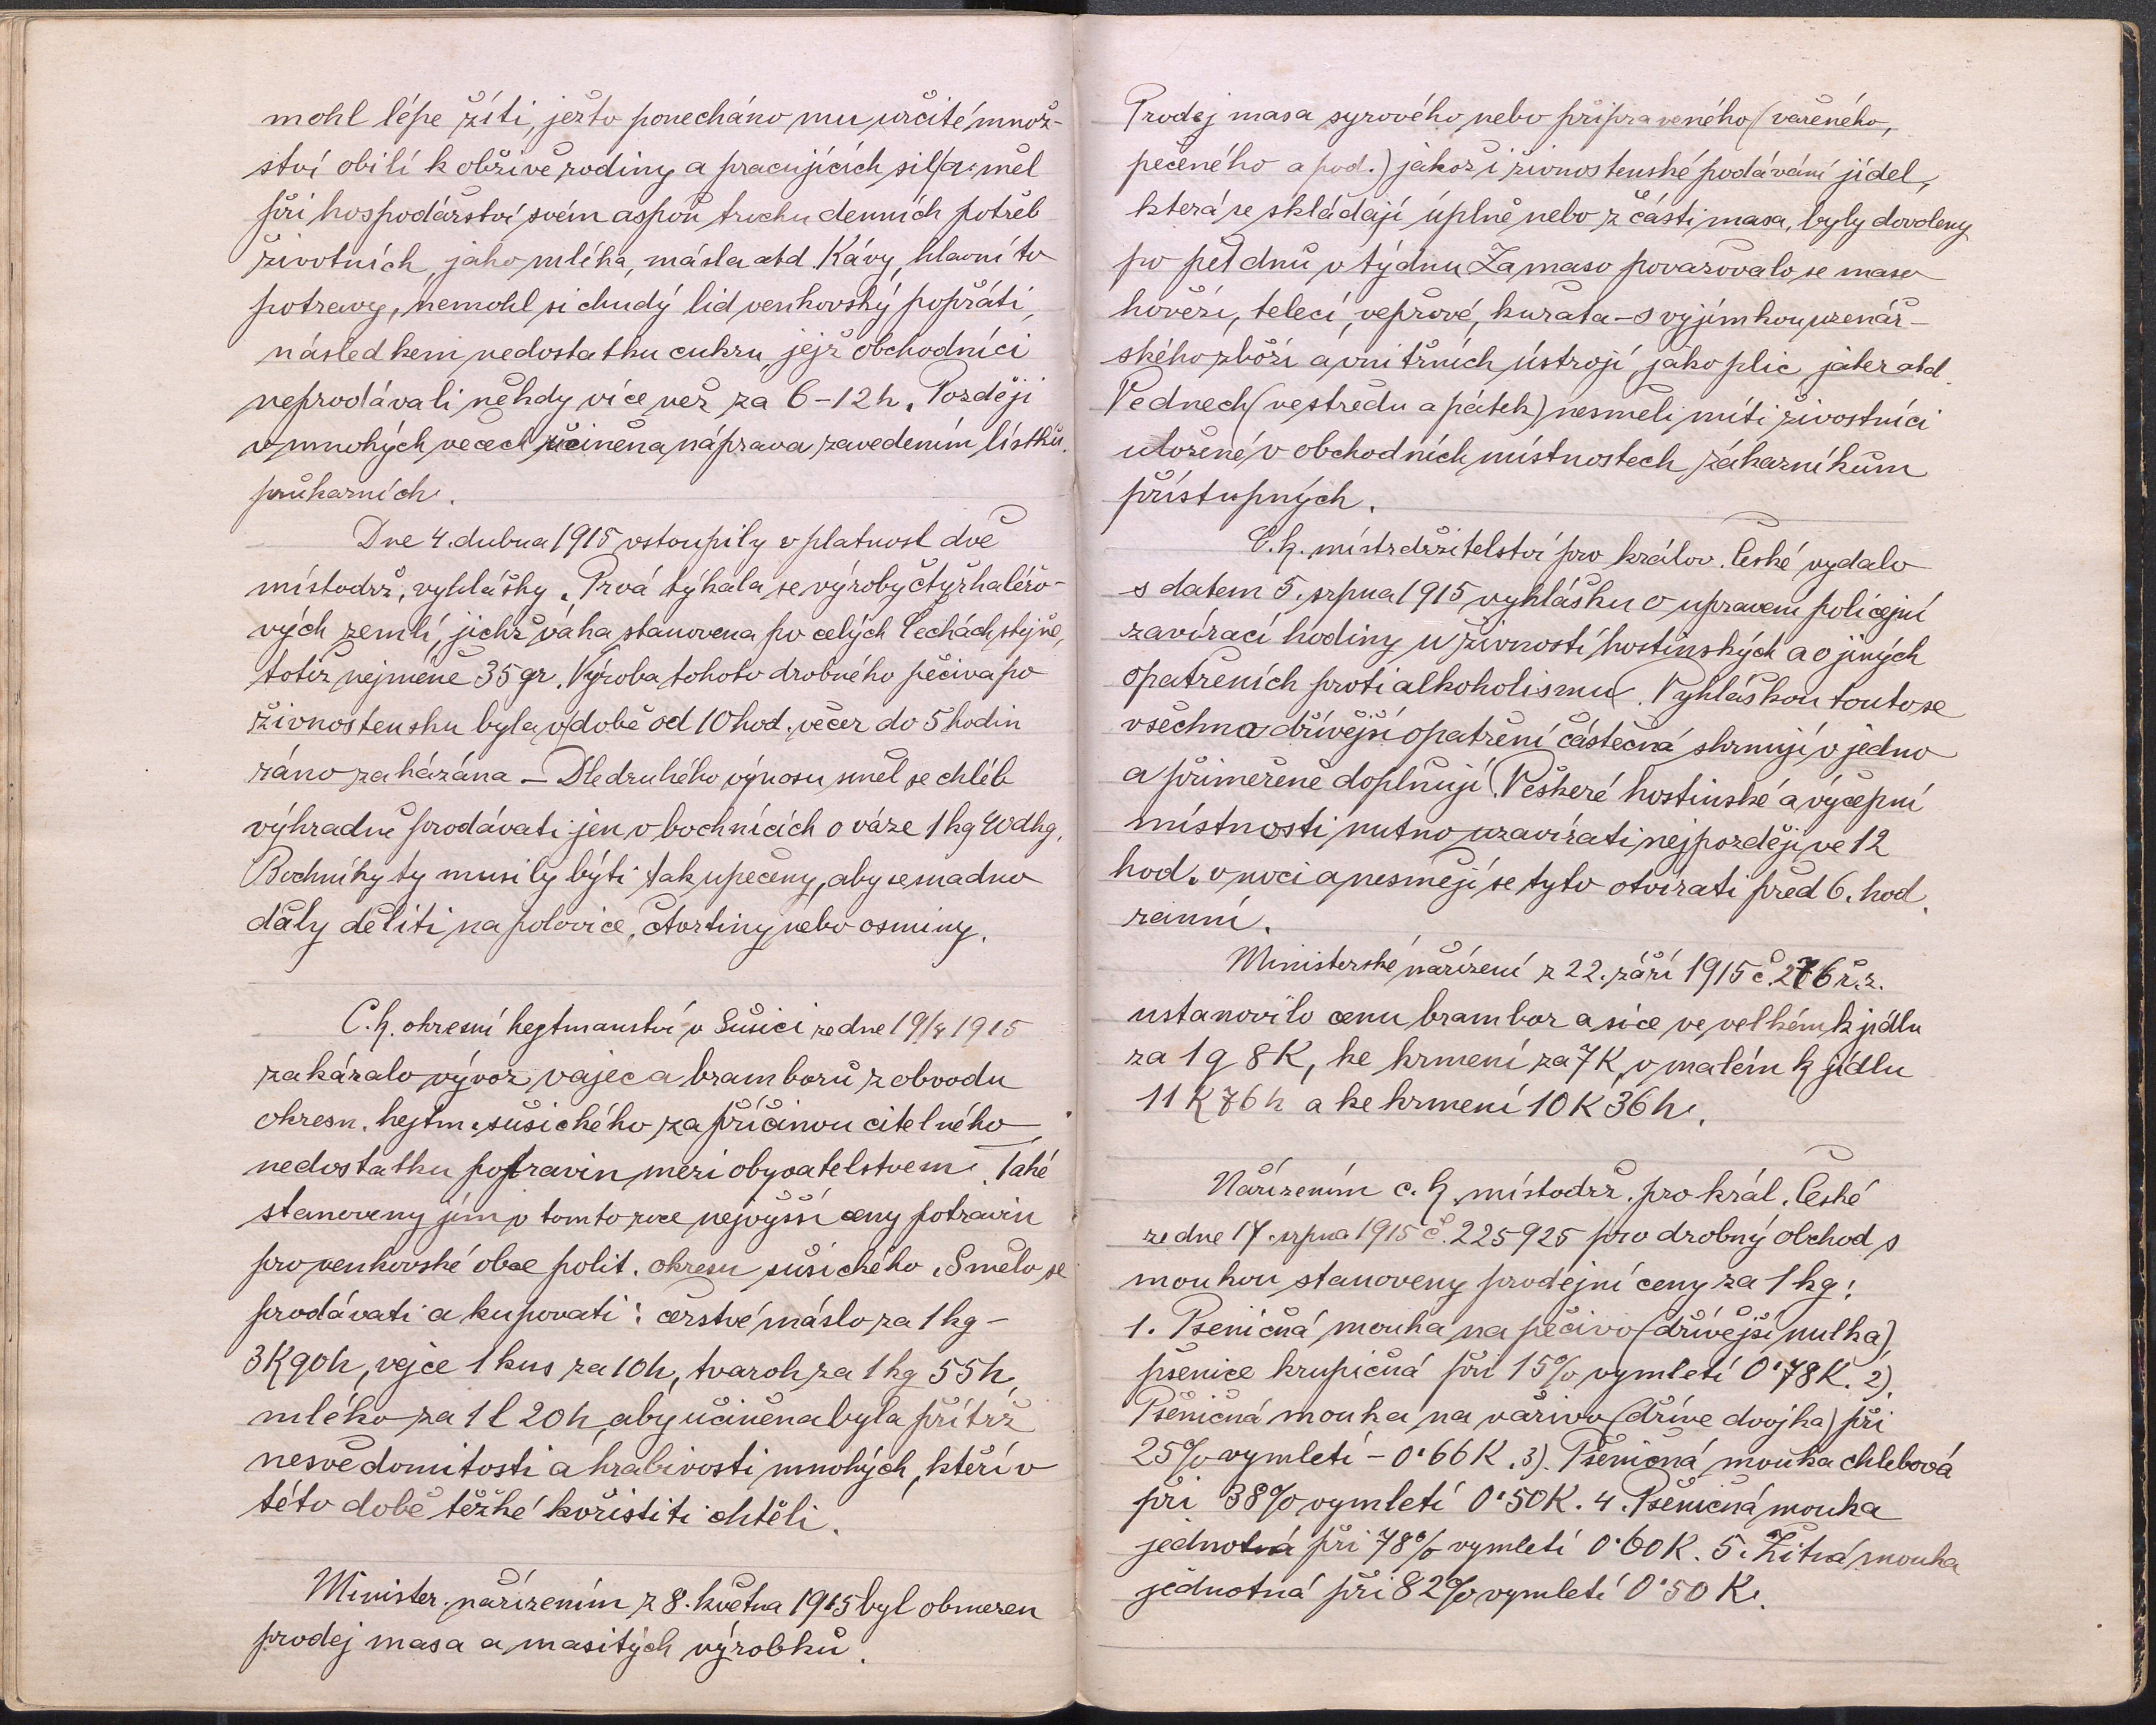 mohl lépe žíti, ježto ponecháno mu určité množ-
ství obilí k obživě rodiny a pracujících sil a měl
při hospodářství svém aspoň trochu denních potřeb
životních, jako mléka, másla atd. Kávy, hlavní to
potravy, nemohl si chudý lid venkovský popřáti,
následkem nedostatku cukru, jejž obchodníci
neprodávali někdy více než za 6-12 h. Později
v mnohých věcech učiněna náprava zavedením lístků
průkazních.
Dne 4. dubna 1915 vstoupily v platnost dvě
místodrž. vyhlášky. Prvá týkala se výroby čtyřhaléřo-
vých žemlí, jichž váha stanovena po celých Čechách stejně,
totiž nejméně 35 gr. Výroba tohoto drobného pečiva po
živnostensku byla v době od 10 hod. večer do 5 hodin
ráno zakázána - Dle druhého výnosu směl se chléb
výhradně prodávati jen v bochnících o váze 1 kg 40 dkg.
Bochníky ty musily býti tak upečeny, aby se snadno
daly děliti na polovice, čtvrtiny nebo osminy.
C. k. okresní hejtmanství v Sušici ze dne 19/4 1915
zakázalo vývoz vajec a bramborů z obvodu
okresn. hejtm. sušického za příčinou citelného
nedostatku potravin mezi obyvatelstvem. Také
stanoveny jím v tomto roce nejvyšší ceny potravin
pro venkovské obce polit. okresu sušického. Smělo se
prodávati a kupovati: čerstvé máslo za 1 kg -
3K 90h, vejce 1 kus za 10h, tvaroh za 1 kg 55h,
mléko za 1 l 20 h, aby učiněna byla přítrž
nesvědomitosti a hrabivosti mnohých, kteří v
této době těžké kořistiti chtěli.
Minister. nařízením z 8. května 1915 byl obmezen
prodej masa a masitých výrobků.
Prodej masa syrového nebo připraveného (vařeného,
pečeného a pod.) jakož i živnostenské podávání jídel,
která se skládají úplně nebo z části masa, byly dovoleny
po pět dnů v týdnu. Za maso považovalo se maso
hovězí, telecí, vepřové, kuřata - s vyjímkou uzenář-
ského zboží a vnitřních ústrojí, jako plic, jater atd.
Ve dnech (ve středu a pátek) nesměli míti živostníci
uložené v obchodních místnostech zákazníkům
přístupných.
C. k. místrdržitelství pro králov. České vydalo
s datem 5. srpna 1915 vyhlášku o upravení policejní
zavírací hodiny u živností hostinských a o jiných
opatřeních proti alkoholismu. Vyhláškou touto se
všechna dřívější opatření částečná shrnují v jedno
a přiměřeně doplňují. Veškeré hostinské a výčepní
místnosti nutno uzavírati nejpozději ve 12
hod. v noci a nesmějí se tyto otvírati před 6. hod.
ranní.
Ministerské nařízení z 22. září 1915 č. 276 ř. z.
ustanovilo cenu brambor a sice ve velkém k jídlu
za 1 q 8 K, ke krmení za 7 K, v malém k jídlu
11 K 76 h a ke krmení 10 K 36 h.
Nařízením c. k. místodrž. pro král. České
ze dne 17. srpna 1915 č. 225925 pro drobný obchod s
moukou stanoveny prodejní ceny za 1 kg:
1. Pšeničná mouka na pečivo (dřívější nulka),
pšenice krupičná při 15% vymletí 0·78 K. 2).
Pšeničná mouka na vařivo (dříve dvojka) při
25% vymletí - 0·66 K. 3). Pšeničná mouka chlebová
při 38% vymletí 0·50 K. 4. Pšeničná mouka
jednotná při 78% vymletí 0·60 K. 5. Žitná mouka
jednotná při 82% vymletí 0·50 K.